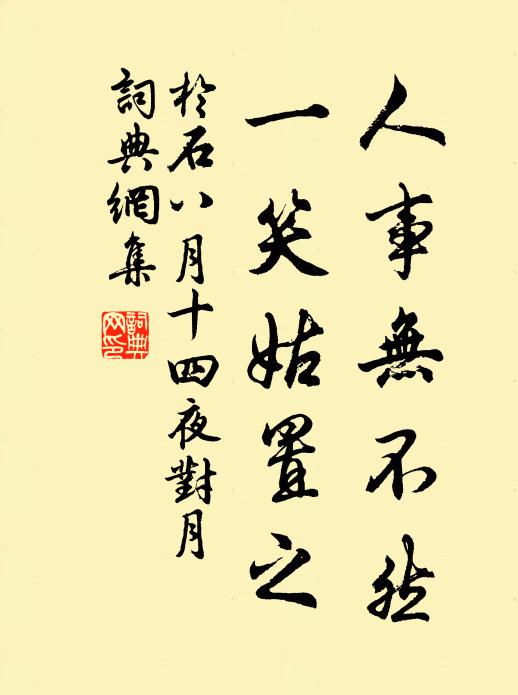 人事無不然
一笑姑置之
於石八月十四夜對月
詞典網集
詞典網印